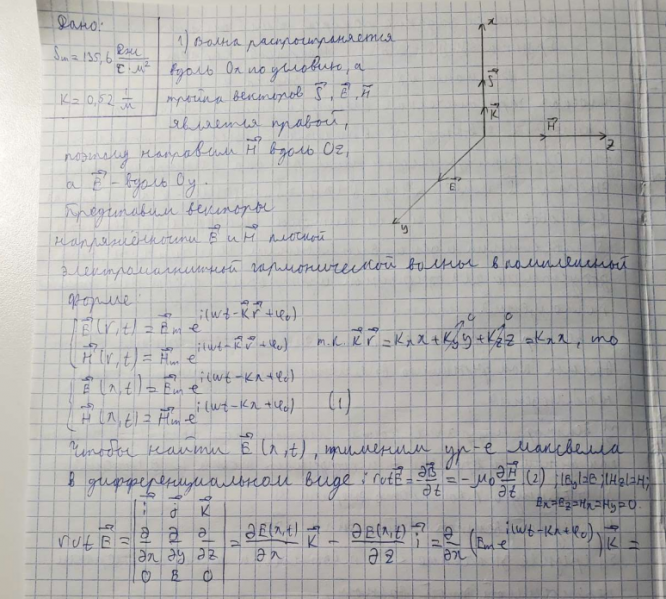 Дано:
Sₘ = 195,6 Дж/(с·м²)
K = 0,52 1/м
1) Волна распространяется
вдоль Ox по условию, а
тройка векторов S⃗, E⃗, H⃗
является правой,
поэтому направим H⃗ вдоль Oz,
а E⃗ - вдоль Oy.
Представим векторы
напряжённости E⃗ и H⃗ плоской
электромагнитной гармонической волны в комплексной
форме:
x
S⃗
K⃗
H⃗
z
E⃗
y
E⃗(r,t) = E⃗ₘ e^{i(ωt - K⃗r⃗ + φ₀)}
H⃗(r,t) = H⃗ₘ e^{i(ωt - K⃗r⃗ + φ₀)} т.к. K⃗r⃗ = Kₓx + K_y y + K_z z = Kₓx, то
0 0
E⃗(x,t) = E⃗ₘ e^{i(ωt - Kx + φ₀)}
H⃗(x,t) = H⃗ₘ e^{i(ωt - Kx + φ₀)} (1)
Чтобы найти E⃗(x,t), применим ур-е Максвелла
в дифференциальном виде: rot E⃗ = ∂B⃗/∂t = -μ₀ ∂H⃗/∂t (2); |E_y|=E; |H_z|=H;
Eₓ=E_z=Hₓ=H_y=0
rot E⃗ = | i⃗ j⃗ K⃗ ; ∂/∂x ∂/∂y ∂/∂z ; 0 E 0 | = ∂E(x,t)/∂x K⃗ - ∂E(x,t)/∂z i⃗ = ∂/∂x (Eₘ e^{i(ωt - Kx + φ₀)}) K⃗ =